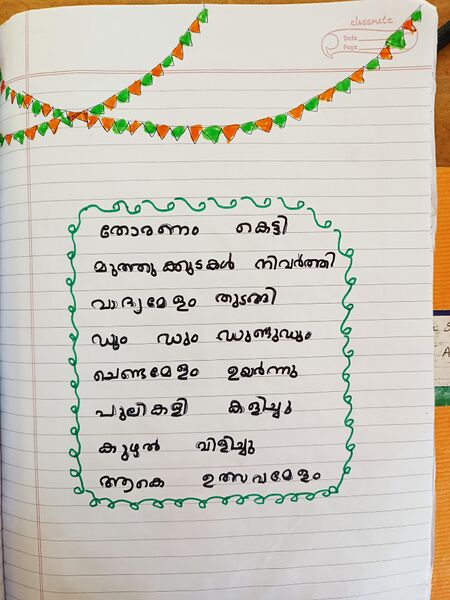 classmate
Date
Page
തോരണം കെട്ടി
മുത്തുക്കുടകൾ നിവർത്തി
വാദ്യമേളം തുടങ്ങി
ഡും ഡും ഡുണ്ടുഡും
ചെണ്ടമേളം ഉയർന്നു
പുലികളി കളിച്ചു
കുഴൽ വിളിച്ചു
ആകെ ഉത്സവമേളം